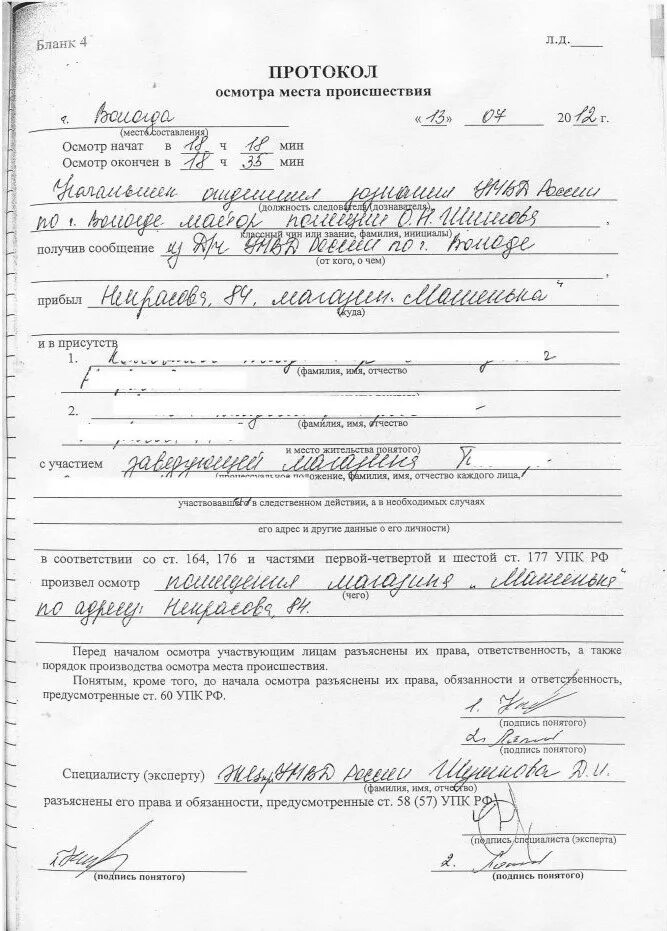 Бланк 4
Л.Д.____
ПРОТОКОЛ
осмотра места происшествия
г. Вологда «13» 07 2012 г.
(место составления)
Осмотр начат в 18 ч 18 мин
Осмотр окончен в 18 ч 35 мин
Начальник отделения дознания УМВД России
(должность следователя (дознавателя),
по г. Вологде майор полиции О.Н.
классный чин или звание, фамилия, инициалы)
получив сообщение из Д/ч УМВД России по г. Вологде
(от кого, о чем)
прибыл Некрасова, 84, магазин „Машенька"
(куда)
и в присутств
1.
(фамилия, имя, отчество
2.
(фамилия, имя, отчество
и место жительства понятого)
с участием заведующей магазина П
(процессуальное положение, фамилия, имя, отчество каждого лица,
участвовавшего в следственном действии, а в необходимых случаях
его адрес и другие данные о его личности)
в соответствии со ст. 164, 176 и частями первой-четвертой и шестой ст. 177 УПК РФ
произвел осмотр помещения магазина „Машенька"
(чего)
по адресу: Некрасова, 84.
Перед началом осмотра участвующим лицам разъяснены их права, ответственность, а также
порядок производства осмотра места происшествия.
Понятым, кроме того, до начала осмотра разъяснены их права, обязанности и ответственность,
предусмотренные ст. 60 УПК РФ.
1.
(подпись понятого)
2.
(подпись понятого)
Специалисту (эксперту) УМВД России Д.И.
(фамилия, имя, отчество)
разъяснены его права и обязанности, предусмотренные ст. 58 (57) УПК РФ.
(подпись специалиста (эксперта)
1.
2.
(подпись понятого) (подпись понятого)